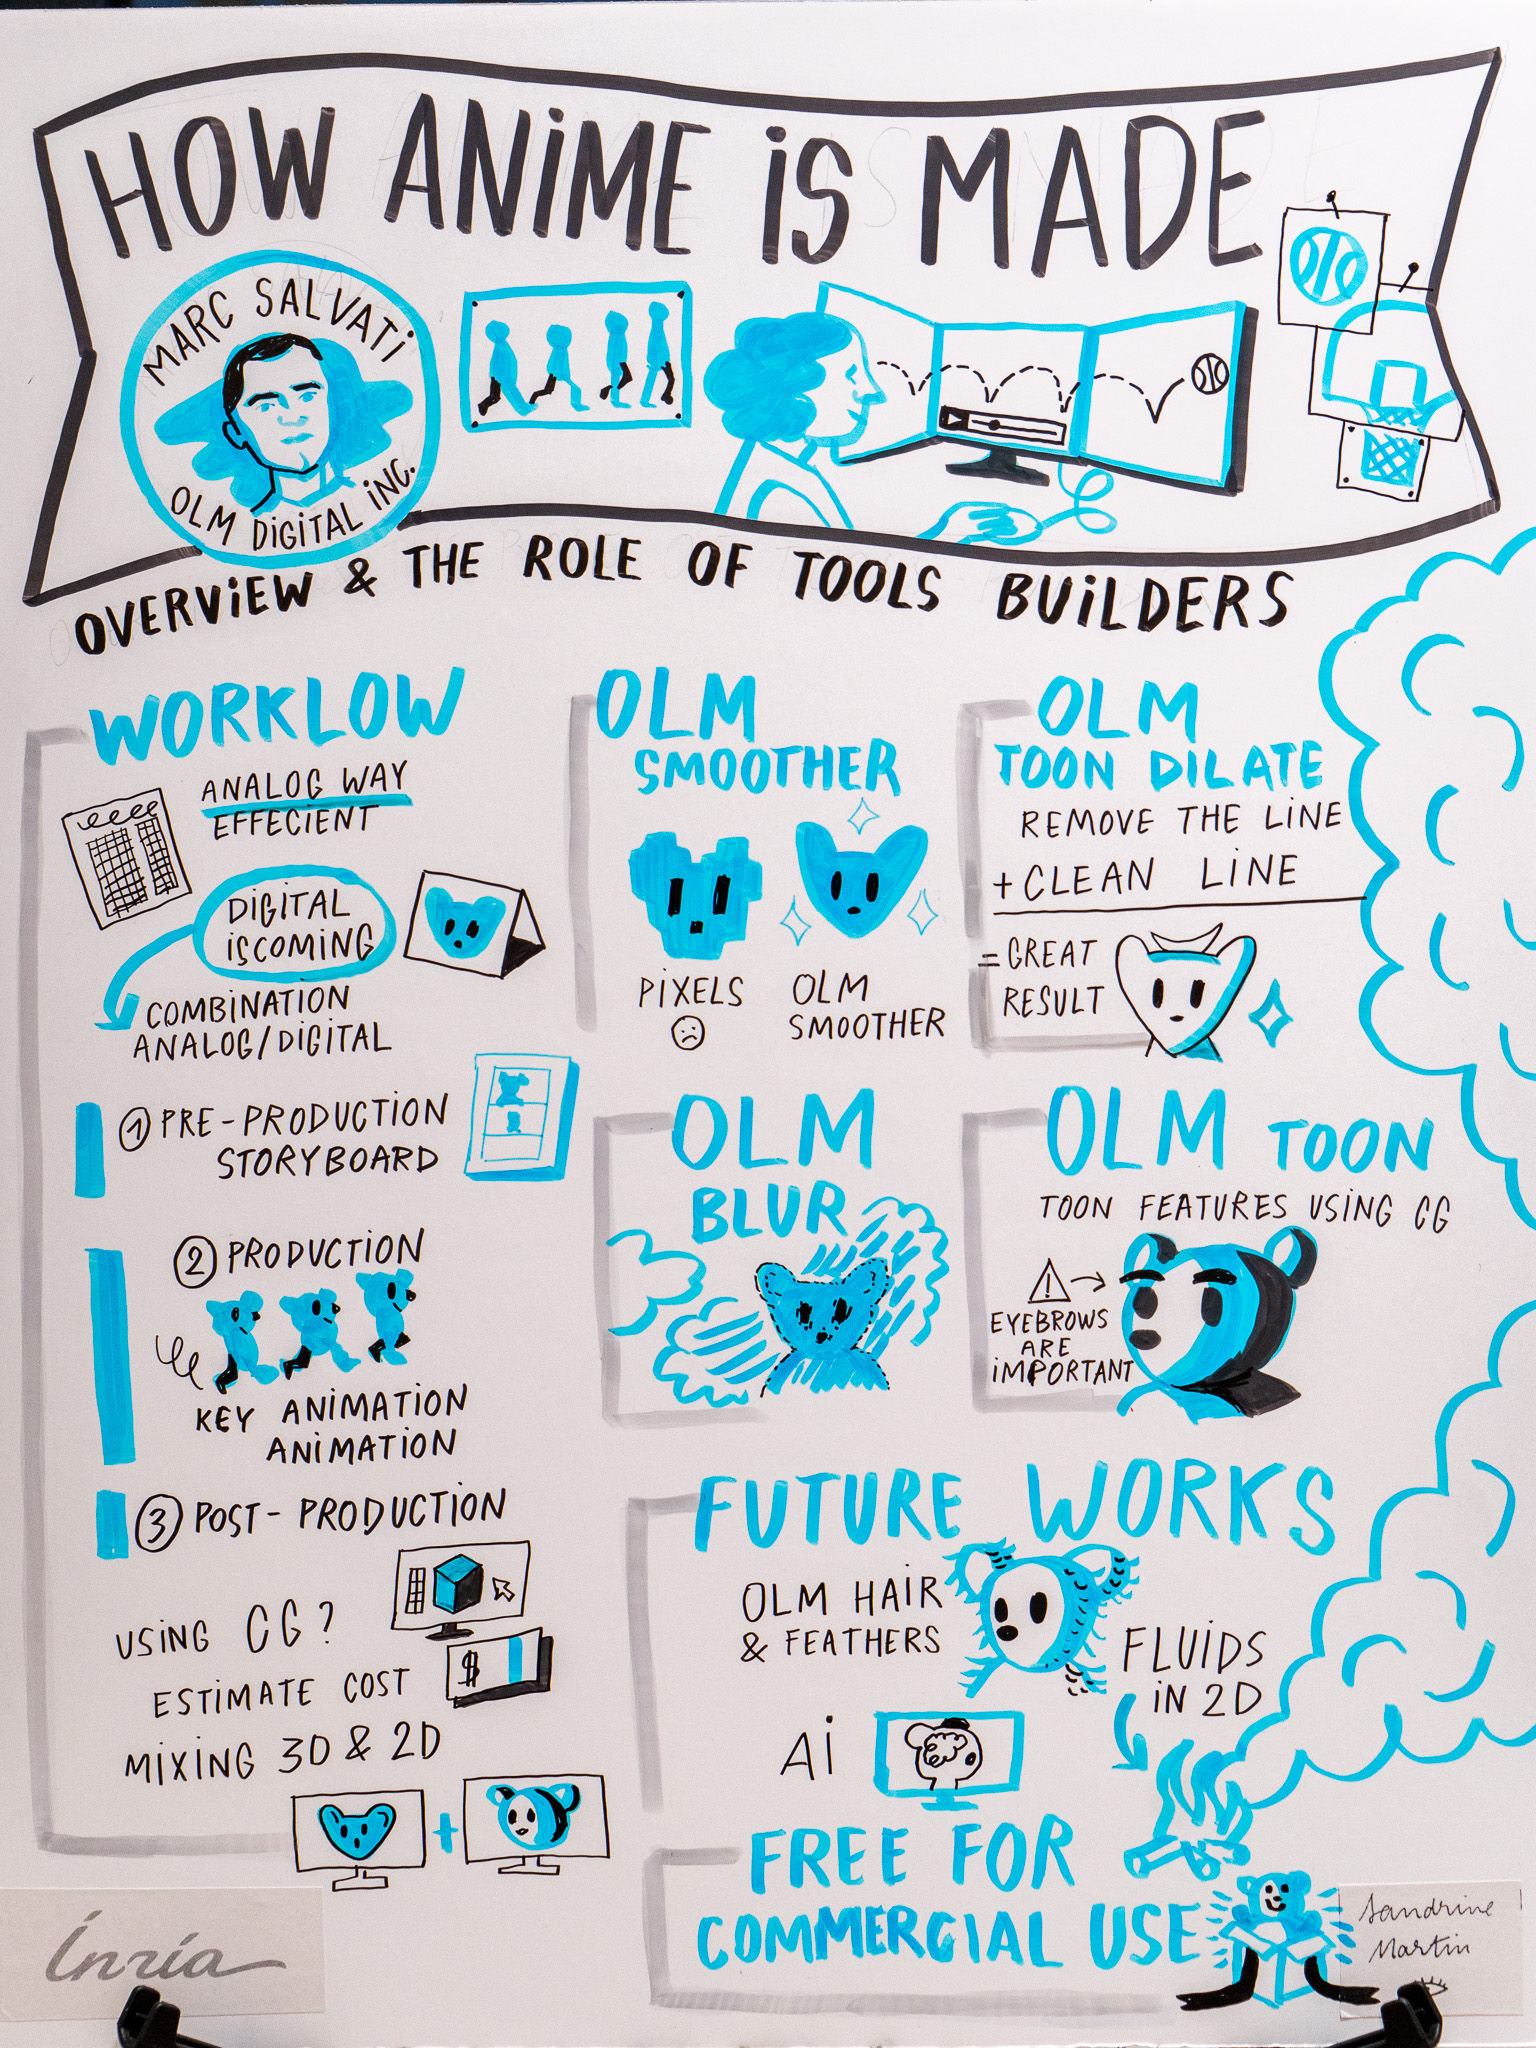 HOW ANiME iS MADE
MARC SALVATi
OLM DiGiTAL iNC.
OVERViEW & THE ROLE OF TOOLS BUiLDERS
WORKLOW
ANALOG WAY
EFFECIENT
DiGiTAL
iSCOMiNG
COMBiNATION
ANALOG/DiGiTAL
① PRE-PRODUCTiON
STORYBOARD
② PRODUCTiON
KEY ANiMATiON
ANiMATiON
③ POST-PRODUCTiON
USiNG CG?
$
ESTiMATE COST
MiXiNG 3D & 2D
+
OLM
SMOOTHER
PiXELS
OLM
SMOOTHER
OLM
TOON DiLATE
REMOVE THE LiNE
+ CLEAN LiNE
= GREAT
RESULT
OLM
BLUR
OLM TOON
TOON FEATURES USiNG CG
EYEBROWS
ARE
iMPORTANT
FUTURE WORKS
OLM HAiR
& FEATHERS
FLUiDS
iN 2D
Ai
FREE FOR
COMMERCiAL USE
Inria
Sandrine
Martin